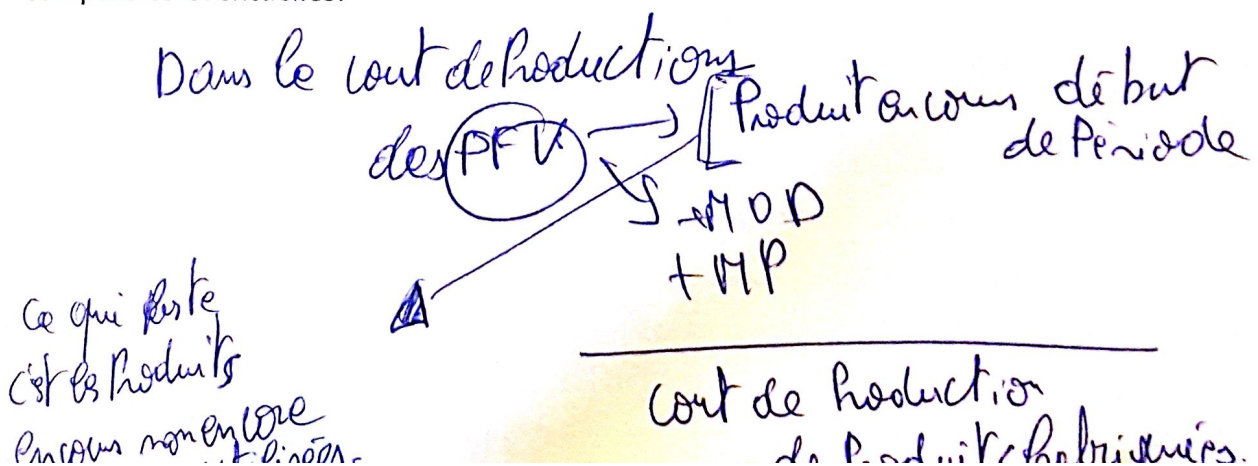 Dans le cout de Productions
des PFV
Produit en cours début
de Période
+ MOD
+ MP
Ce qui Reste
c'est les Produits
encours non encore
utilisées.
Cout de Production
de Produits fabriquées.